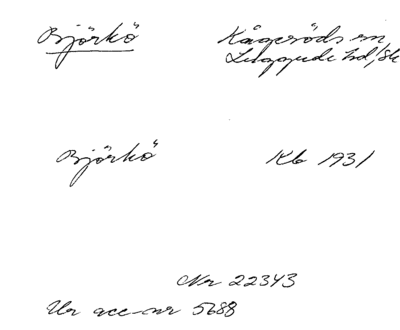 Björkö Kågeröds sn
Luggude hd, Sk
Björkö Kb 1931
Nr 22343
Ur acc-nr 5688